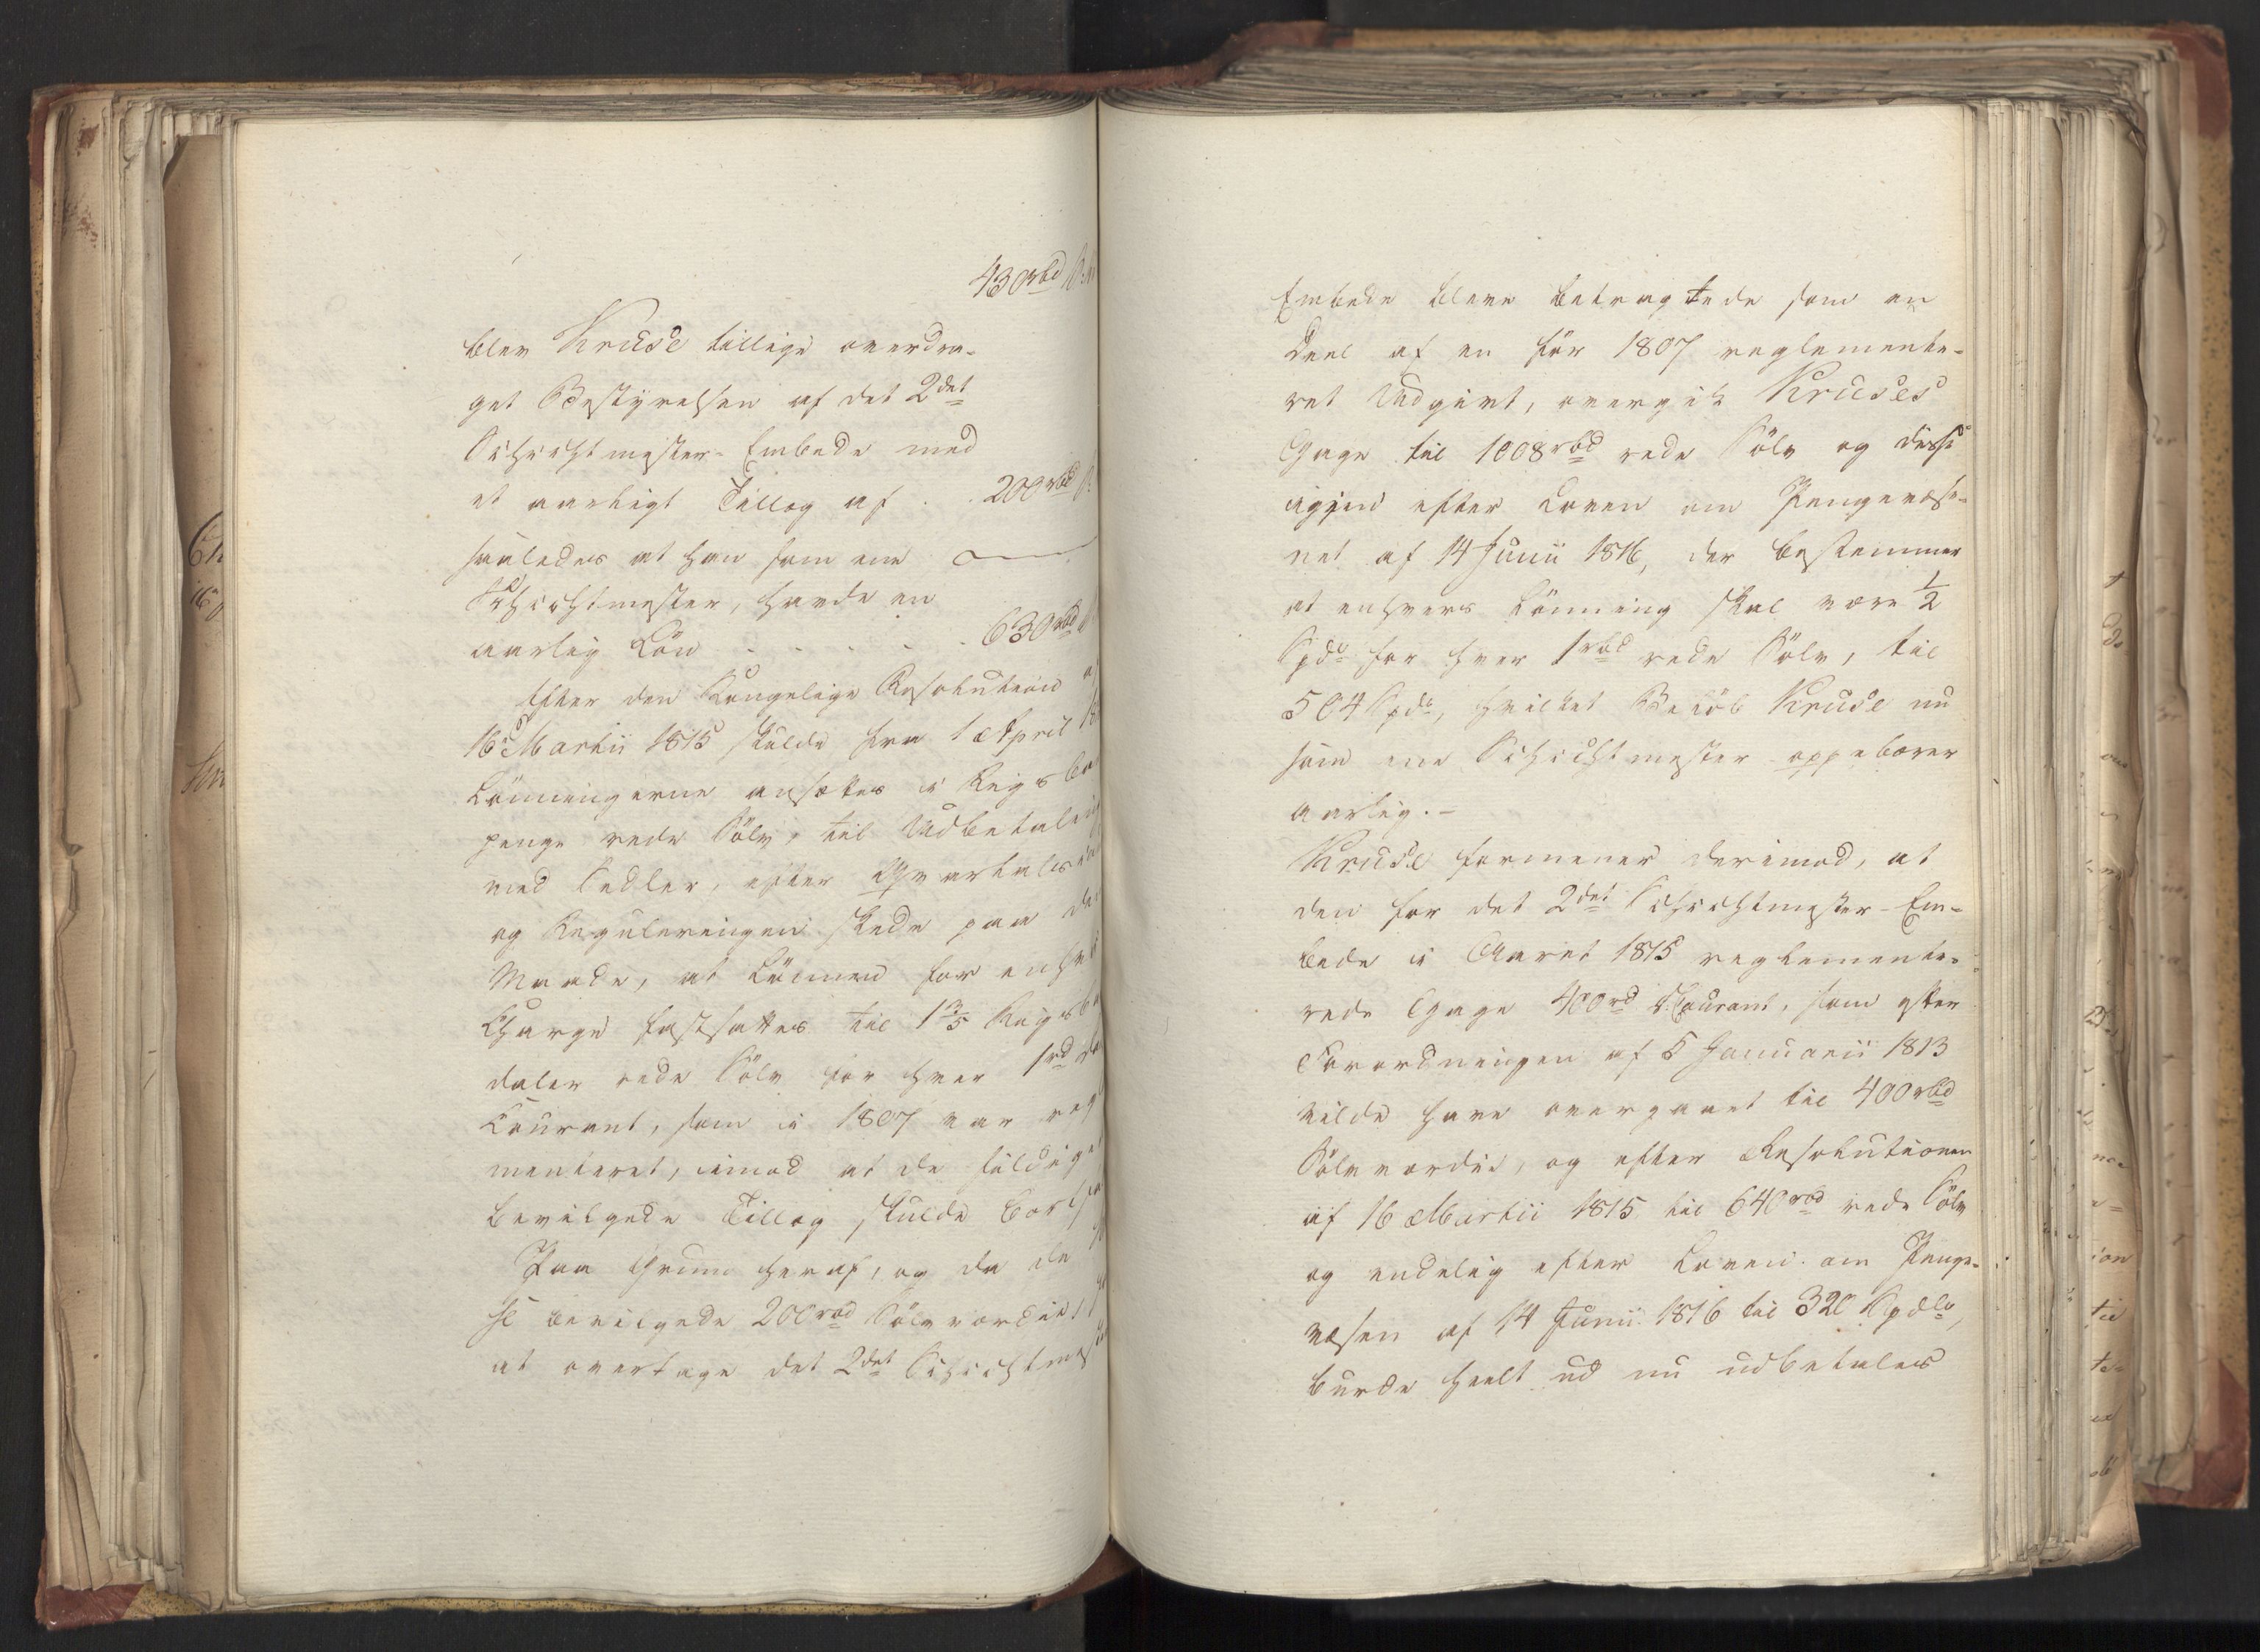 430rbd
blev Kruse tillige overdra-
get Bestyrelsen af det 2det
Schichtmester-Embede med
et aarligt Tillæg af . . 200rbd
saaledes at han som ene
Schichtmester, havde en
aarlig Løn . . . . . 630rbd
Efter den Kongelige Resolution
16 Martii 1815 skulde fra 1 April
Lønningerne ansættes i Rigsba
penge rede Sölv, til Udbetaling
med Sedler, efter Qvartals
og Reguleringen skede paa
Maade, at Lönnen for enhver
Charge fastsattes til 1 3/5 Rigsb
daler rede Sölv for hver 1rd
Courant, som i 1807 var reg
menteret, imod at de sildig
bevilgede Tillæg skulde bortf
Paa Grund heraf, og da de
se bevilgede 200rbd Sölvværdie,
at overtage det 2det Schichtmes
Embede bleve betragtede som en
Deel af en för 1807 reglemente-
ret Udgivt, overgik Kruses
Gage til 1008rbd rede Sölv og disse
igjen efter Loven om Pengevæse-
net af 14 Junii 1816, der bestemmer
at enhvers Lönning skal være 1/2
Spd for hver 1rbd rede Sölv, til
504 Spd, hvilket Belöb Kruse nu
som ene Schichtmester oppebærer
aarlig.-
Kruse formener derimod, at
den for det 2det Schichtmester-Em-
bede i Aaret 1815 reglemente-
rede Gage 400rd d. Courant, som efter
Forordningen af 5 Januarii 1813
vilde have overgaaet til 400rbd
Sölvværdie, og efter Resolutionen
af 16 Martii 1815 til 640rbd rede Sölv
og endelig efter Loven om Penge-
væsen af 14 Junii 1816 til 320 Spdlr,
burde heelt ud nu udbetales